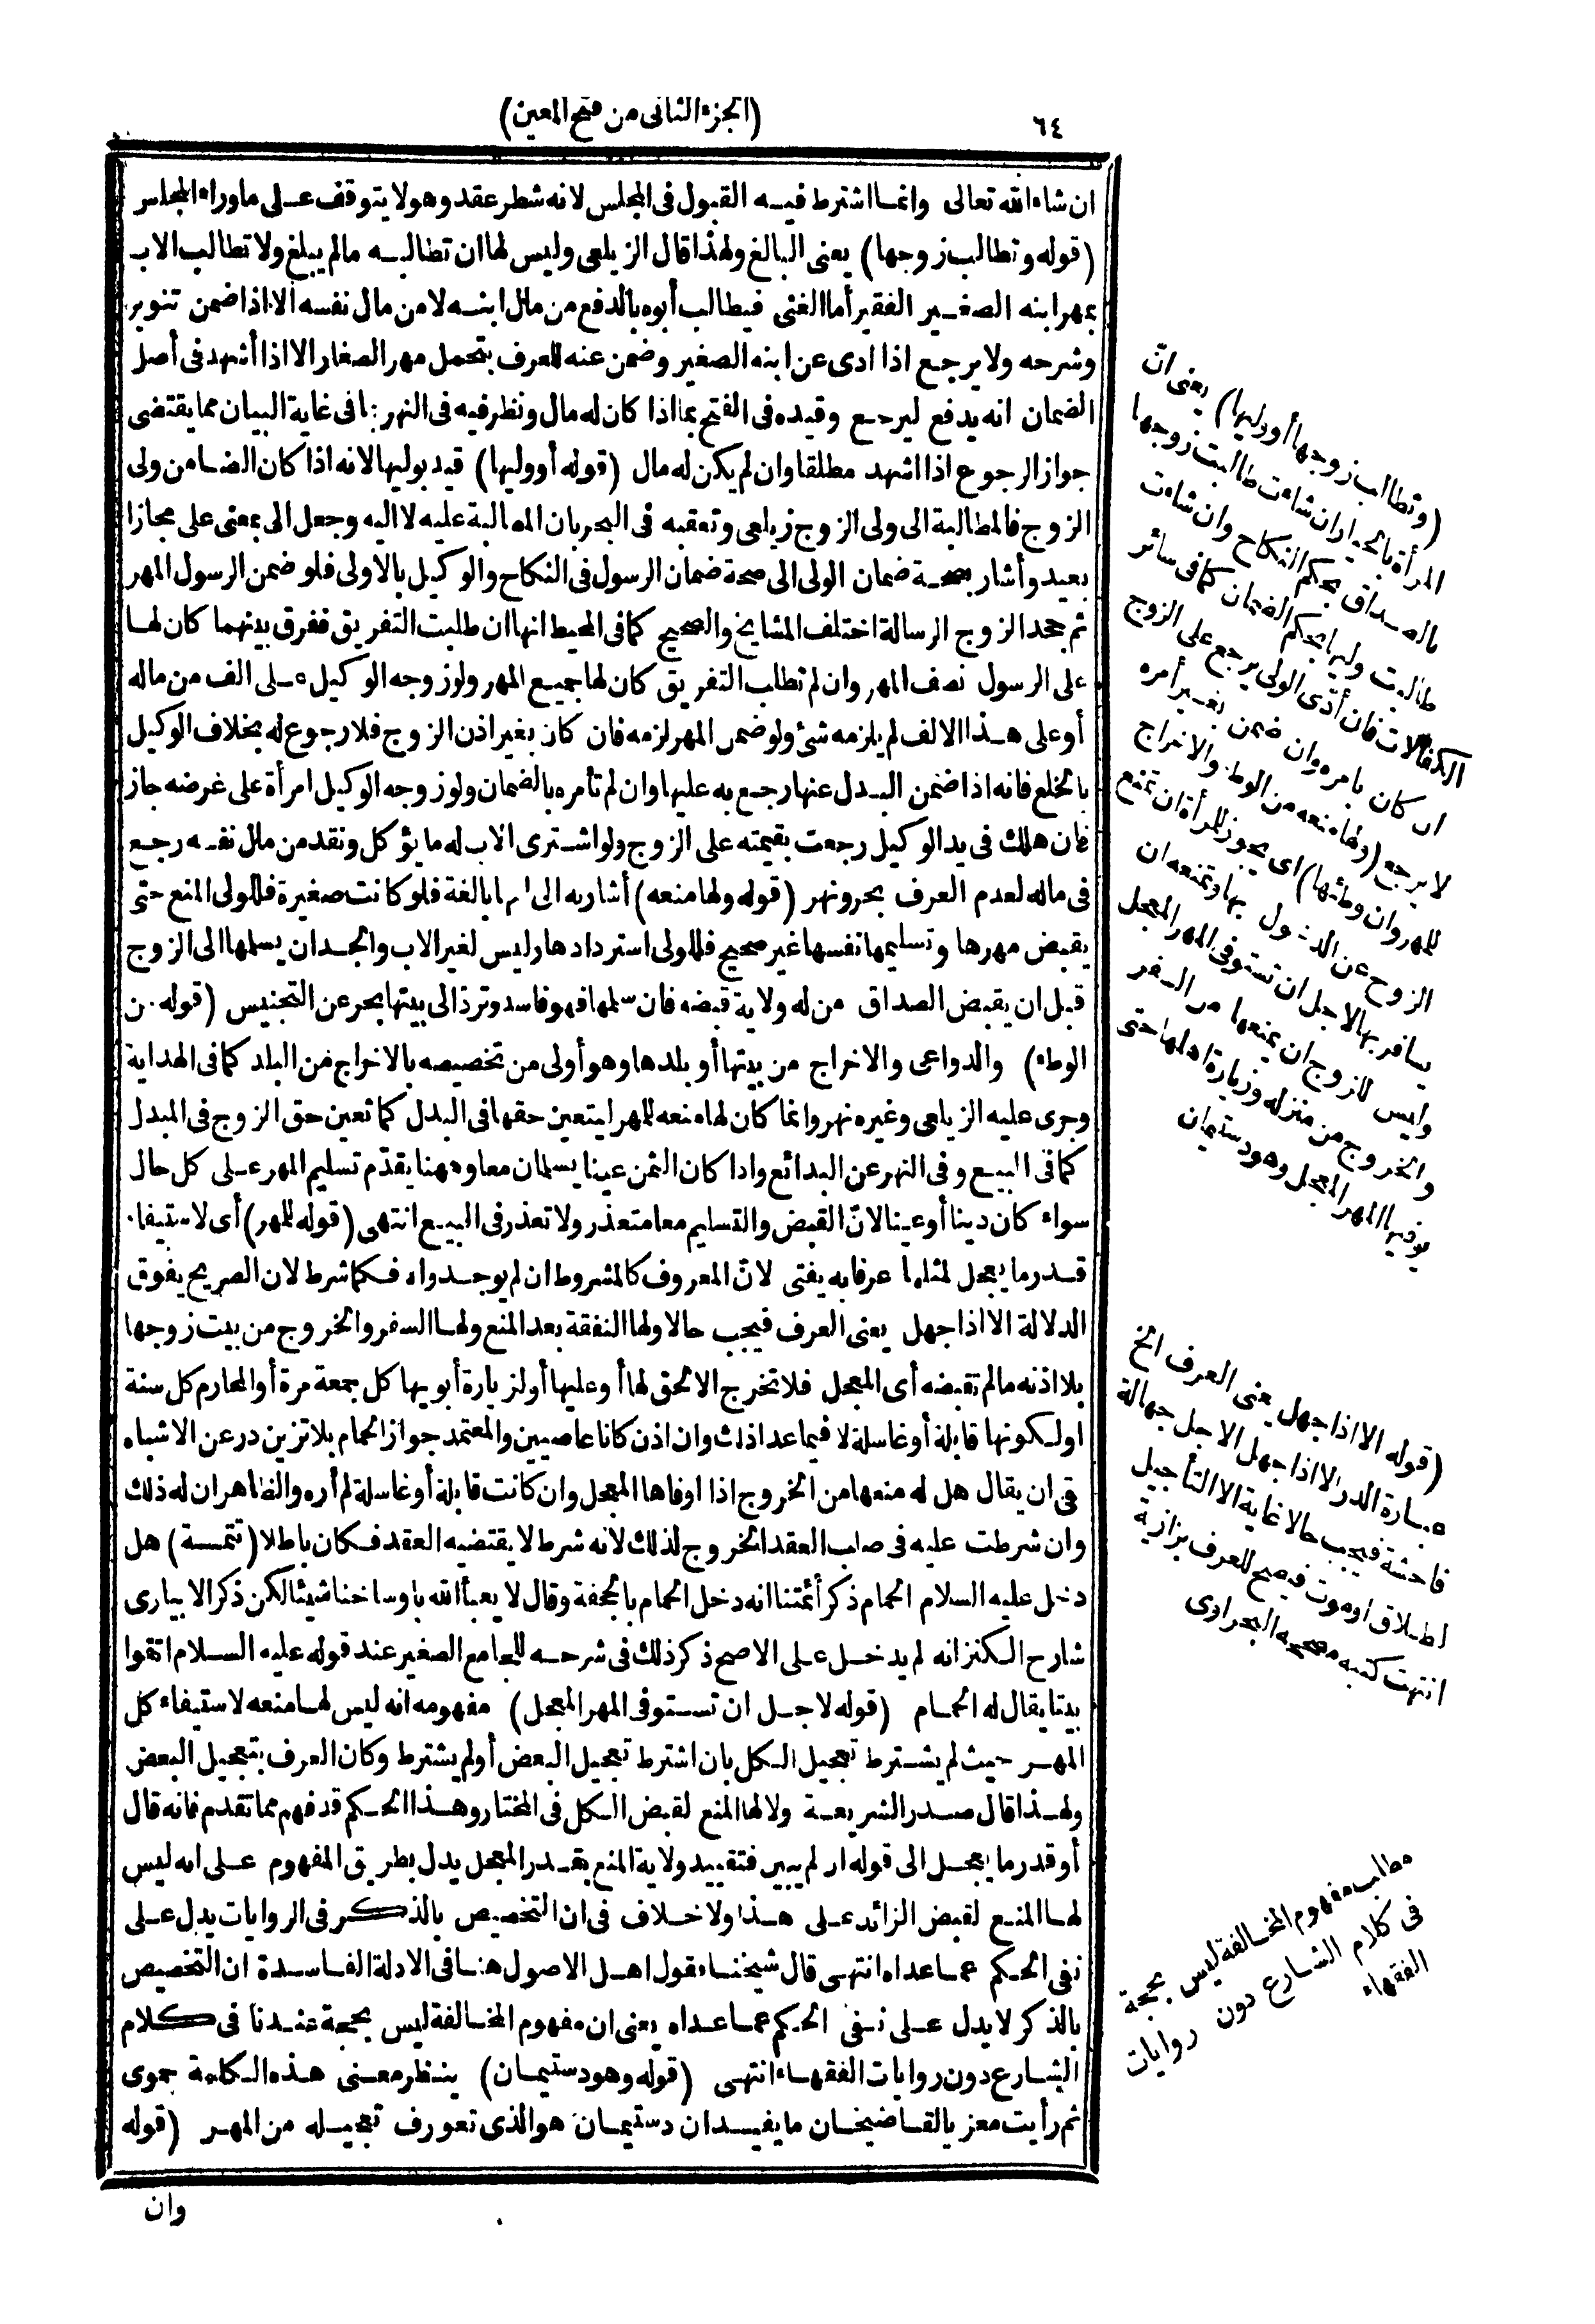 ٦٤
(الجزء الثانى من فتح المعين)
ان شاء الله تعالى وانما اشترط فيه القبول فى المجلس لانه شطر عقد وهو لا يتوقف على ما وراء المجلس
(قوله وتطالب زوجها) يعنى البالغ ولهذا قال الزيلعى وليس لها ان تطالبه ما لم يبلغ ولا تطالب الاب
بمهر ابنه الصغير الفقير أما الغنى فيطالب أبوه بالدفع من مال ابنه لا من مال نفسه الا اذا ضمن تنوير
وشرحه ولا يرجع اذا ادى عن ابنه الصغير وضمن عنه للعرف بتحمل مهر الصغار الا اذا أشهد فى أصل
الضمان انه يدفع ليرجع وقيده فى الفتح بما اذا كان له مال ونظر فيه فى النهر بما فى غاية البيان مما يقتضى
جواز الرجوع اذا اشهد مطلقا وان لم يكن له مال (قوله أو وليها) قيد بوليها لانه اذا كان الضامن ولى
الزوج فالمطالبة الى ولى الزوج زيلعى وتعقبه فى البحر بان المطالبة عليه لا اليه وجعل الى بمعنى على مجازا
بعيد وأشار بصحة ضمان الولى الى صحة ضمان الرسول فى النكاح والوكيل بالاولى فلو ضمن الرسول المهر
ثم جحد الزوج الرسالة اختلف المشايخ والصحيح كما فى المحيط انها ان طلبت التفريق ففرق بينهما كان لها
على الرسول نصف المهر وان لم تطلب التفريق كان لها جميع المهر ولو زوجه الوكيل على الف من ماله
أو على هذا الالف لم يلزمه شئ ولو ضمن المهر لزمه فان كان بغير اذن الزوج فلا رجوع له بخلاف الوكيل
بالخلع فانه اذا ضمن البدل عنها رجع به عليها وان لم تأمره بالضمان ولو زوجه الوكيل امرأة على عرضه جاز
فان هلك فى يد الوكيل رجعت بقيمته على الزوج ولو اشترى الاب له ما يؤكل ونقد من مال نفسه رجع
فى ماله لعدم العرف بحر ونهر (قوله ولها منعه) أشار به الى انها بالغة فلو كانت صغيرة فللولى المنع حتى
يقبض مهرها وتسليمها نفسها غير صحيح فللولى استردادها وليس لغير الاب والجد ان يسلمها الى الزوج
قبل ان يقبض الصداق من له ولاية قبضه فان سلمها فهو فاسد وترد الى بيتها بحر عن التجنيس (قوله من
الوطء) والدواعى والاخراج من بيتها أو بلدها وهو أولى من تخصيصه بالاخراج من البلد كما فى الهداية
وجرى عليه الزيلعى وغيره نهر وانما كان لها منعه للمهر ليتعين حقها فى البدل كما تعين حق الزوج فى المبدل
كما فى البيع وفى النهر عن البدائع واذا كان الثمن عينا يسلمان معا وههنا يقدّم تسليم المهر على كل حال
سواء كان دينا أو عينا لانّ القبض والتسليم معا متعذر ولا تعذر فى البيع انتهى (قوله للمهر) أى لاستيفاء
قدر ما يعجل لمثلها عرفا به يفتى لانّ المعروف كالمشروط ان لم يوجد واه فكما شرط لان الصريح يفوق
الدلالة الا اذا جهل يعنى العرف فيجب حالا ولها النفقة بعد المنع ولها السفر والخروج من بيت زوجها
بلا اذنه ما لم تقبضه أى المعجل فلا تخرج الا لحق لها أو عليها أو لزيارة أبويها كل جمعة مرة أو المحارم كل سنة
او لكونها قابلة أو غاسلة لا فيما عدا ذلك وان اذن كانا عاصيين والمعتمد جواز الحمام بلا تزين در عن الاشباه
قى ان يقال هل له منعها من الخروج اذا اوفاها المعجل وان كانت قابلة أو غاسلة لم أره والظاهر ان له ذلك
وان شرطت عليه فى صلب العقد الخروج لذلك لانه شرط لا يقتضيه العقد فكان باطلا (تتمة) هل
دخل عليه السلام الحمام ذكر أئمتنا انه دخل الحمام بالجحفة وقال لا يعبأ الله باوساخنا شيئا لكن ذكر الابيارى
شارح الكنز انه لم يدخل على الاصح ذكر ذلك فى شرحه للجامع الصغير عند قوله عليه السلام اتقوا
بيتا يقال له الحمام (قوله لاجل ان تستوفى المهر المعجل) مفهومه انه ليس لها منعه لاستيفاء كل
المهر حيث لم يشترط تعجيل الكل بان اشترط تعجيل البعض أو لم يشترط وكان العرف بتعجيل البعض
ولهذا قال صدر الشريعة ولا لها المنع لقبض الكل فى المختار وهذا الحكم قد فهم مما تقدم فانه قال
أو قدر ما يعجل الى قوله ان لم يبين فتقييد ولاية المنع بقدر المعجل يدل بطريق المفهوم على انه ليس
لها المنع لقبض الزائد على هذا ولا خلاف فى ان التخصيص بالذكر فى الروايات يدل على
نفى الحكم عما عداه انتهى قال شيخنا قول اهل الاصول هنا فى الادلة الفاسدة ان التخصيص
بالذكر لا يدل على نفى الحكم عما عداه يعنى ان مفهوم المخالفة ليس بحجة عندنا فى كلام
الشارع دون روايات الفقهاء انتهى (قوله وهو دستيمان) ينظر معنى هذه الكلمة حموى
ثم رأيت معزيا لقاضيخان ما يفيد ان دستيمان هو الذى تعورف تعجيله من المهر (قوله
وان
(وتطالب زوجها أو وليها) يعنى انّ
المرأة بالخيار ان شاءت طالبت زوجها
بالصداق بحكم النكاح وان شاءت
طالبت وليها بحكم الضمان كما فى سائر
الكفالات فان أدّى الولى يرجع على الزوج
ان كان بامره وان ضمن بغير أمره
لا يرجع (ولها منعه من الوطء والاخراج
للمهر وان وطئها) اى يجوز للمرأة ان تمنع
الزوج عن الدخول بها وتمنعه ان
يسافر بها لاجل ان تستوفى المهر المعجل
وليس للزوج ان يمنعها من السفر
والخروج من منزله وزيارة اهلها حتى
يوفيها المهر المعجل وهو دستيمان
(قوله الا اذا جهل يعنى العرف الخ
عبارة الدر الا اذا جهل الاجل جهالة
فاحشة فيجب حالا غاية الا التأجيل
لطلاق او موت فيصح للعرف بزازية
انتهت كتبه مصححه البحراوى
مطلب مفهوم المخالفة ليس بحجة
فى كلام الشارع دون روايات
الفقهاء